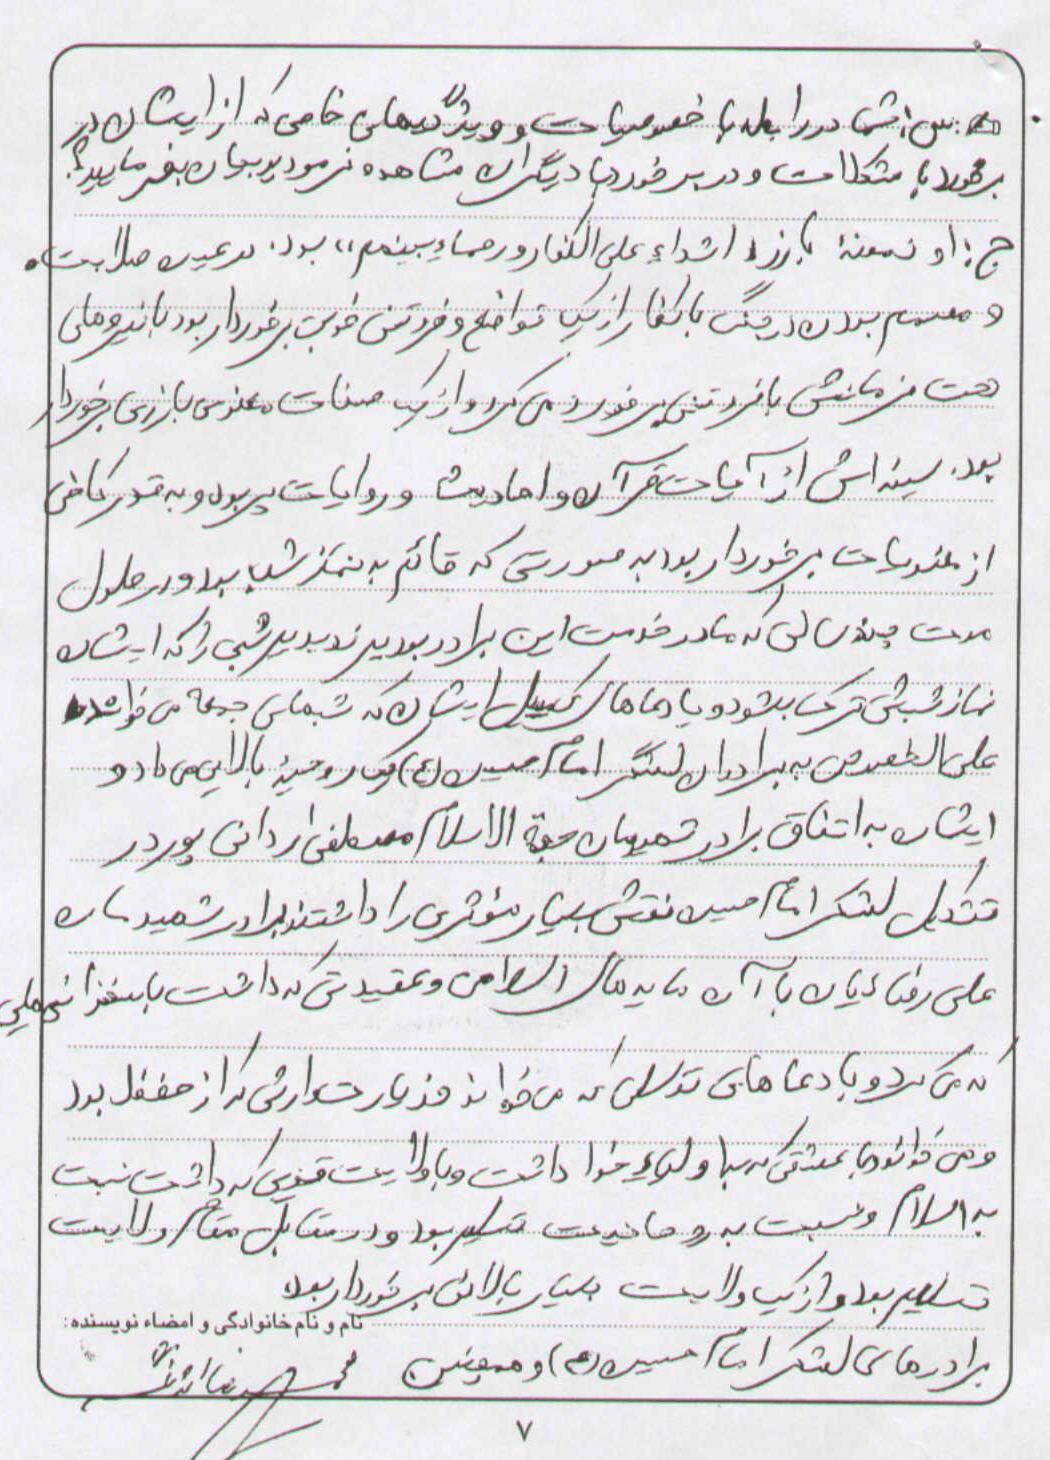 س: شما در رابطه با خصوصیات و ویژگیهای خاصی که از ایشان در
برخورد با مشکلات و در برخورد با دیگران مشاهده نمودید بیان بفرمایید؟
ج: او نمونۀ بارز اشداء علی الکفار و رحماء بینهم،، بود. در عین صلابت
و مصمم بودن در جنگ با کفار از یک تواضع و فروتنی خوبی برخوردار بود با نیروهای
تحت فرمانش با فروتنی برخورد می کرد و از یک صفات معنوی بارزی برخوردار
بود. سینه اش از آیات قرآن و احادیث و روایات پر بود و به قدر کافی
از معنویات برخوردار بود به صورتی که قائم به نماز شب بود و در طول
مدت چند سالی که ما در خدمت این برادر بودیم ندیدیم شبی را که ایشان
نماز شبش ترک بشود و با دعاهای کمیل ایشان که شبهای جمعه می خواند
علی الخصوص به برادران لشگر امام حسین (ع) یک روحیۀ بالایی می داد و
ایشان به اتفاق برادر شهیدمان حجة الاسلام مصطفی ردانی پور در
تشکیل لشکر امام حسین نقش بسیار مؤثری را داشتند برادر شهیدمان
علی رضائیان با آن مایه های اسلامی و عقیدتی که داشت با سخنرانی هایی
که می کرد و با دعاهای توسلی که می خواند و زیارت وارثی که از حفظ بود
و می خواند با عشقی که به اولیاء خدا داشت و با ولایت قویی که داشت نسبت
به اسلام و نسبت به روحانیت تسلیم بود و در مقابل مقام ولایت
تسلیم بود و از یک ولایت بسیار بالائی برخوردار بود
نام و نام خانوادگی و امضاء نویسنده:
برادرهای لشکر امام حسین (ع) و همچنین
۷